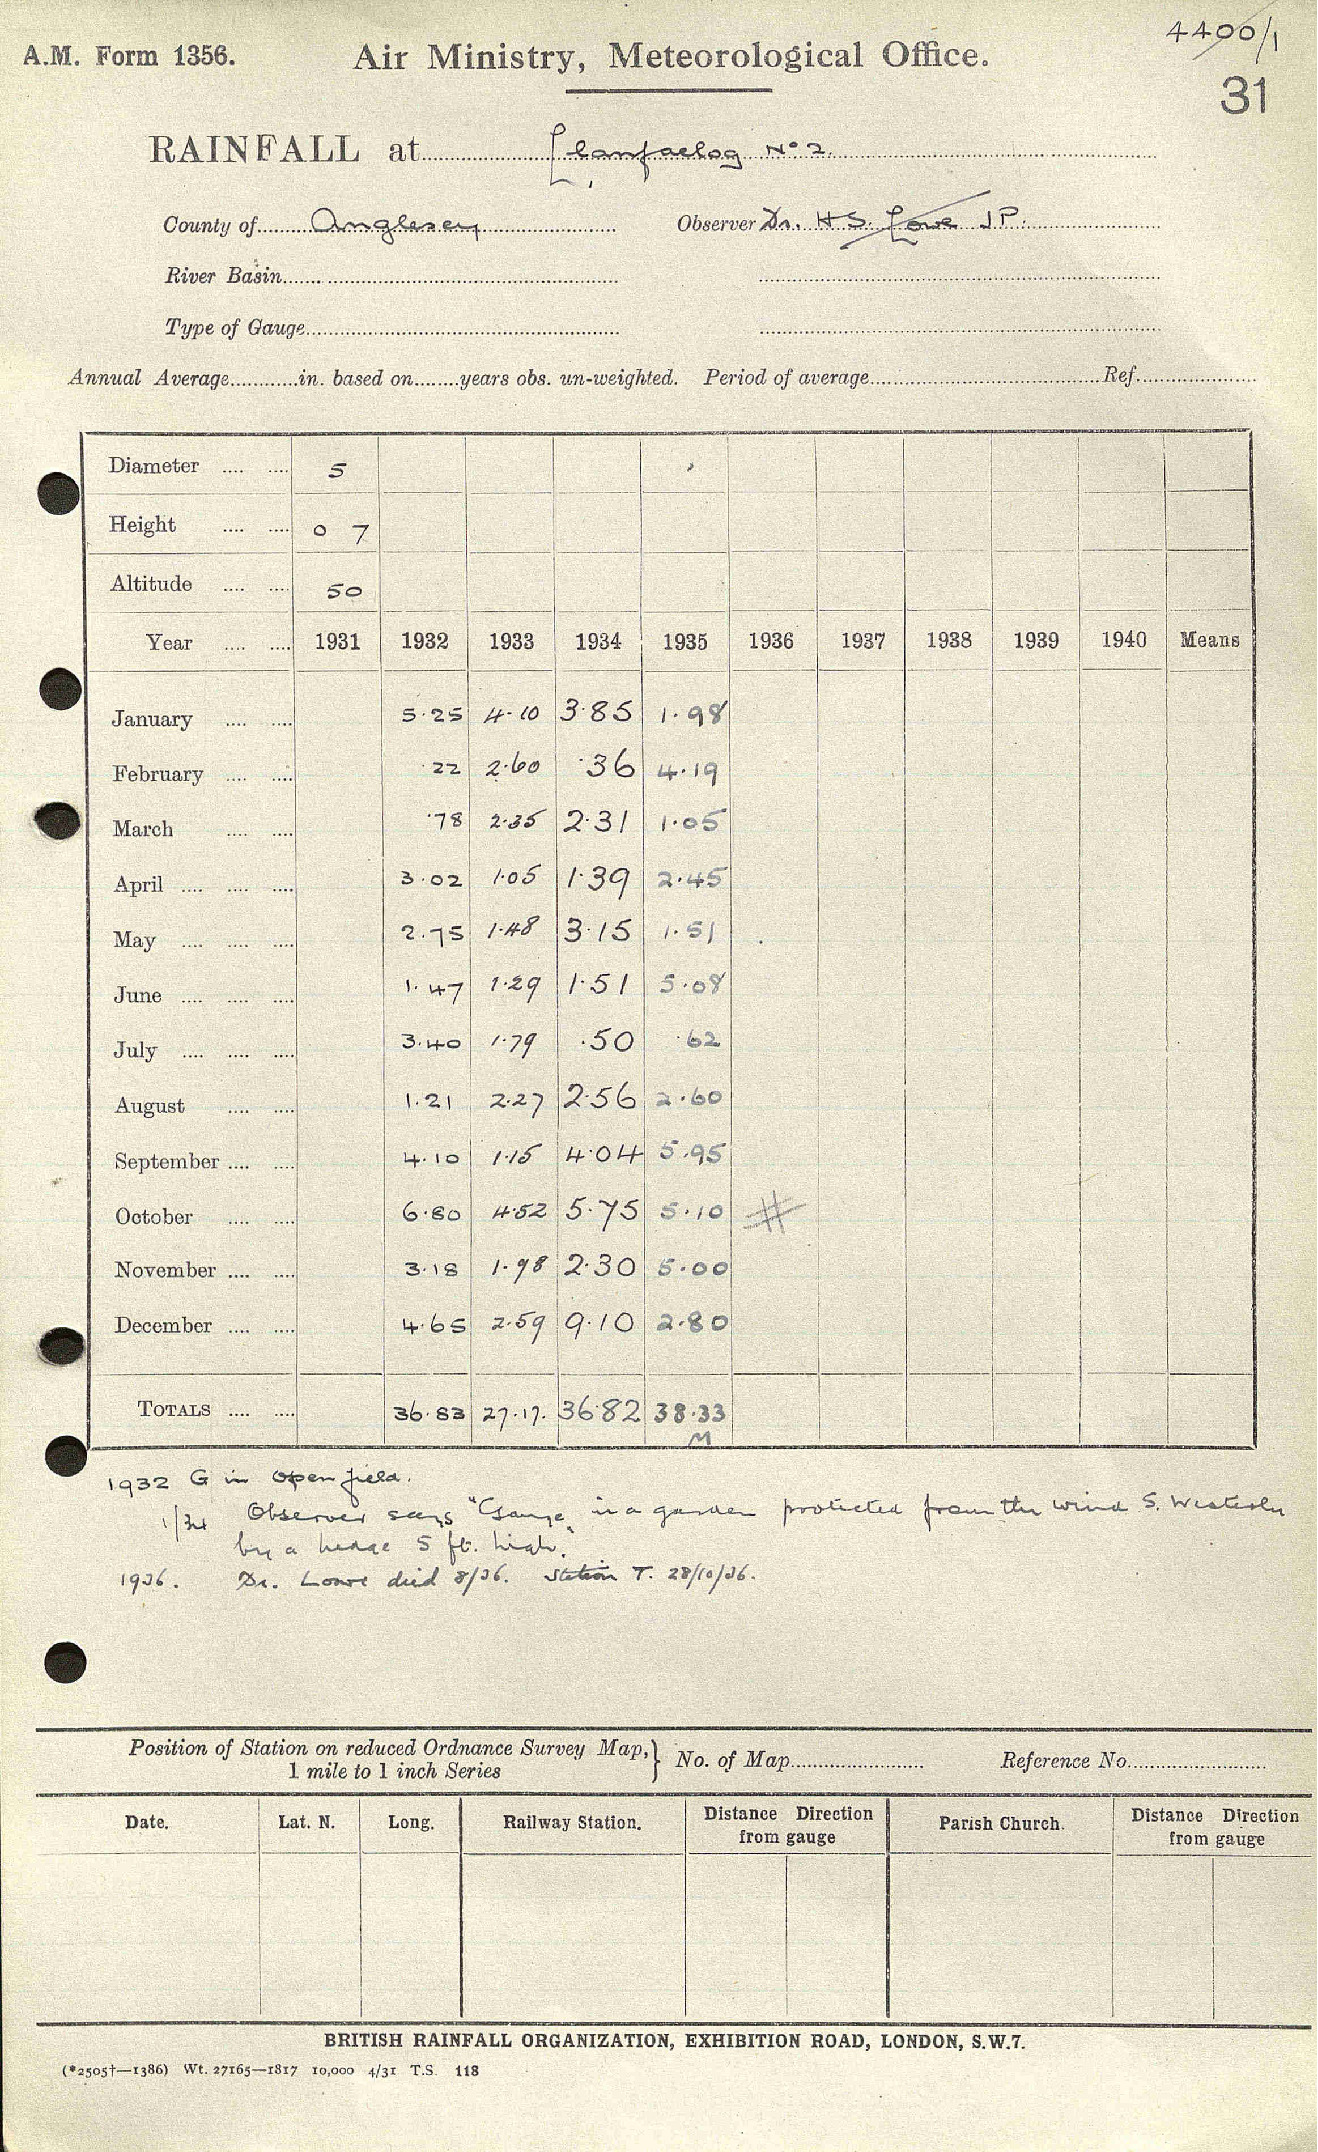 4400/1
A.M. Form 1356. Air Ministry, Meteorological Office.
31
RAINFALL at Llanfaelog No 2.
County of Anglesey Observer Dr. H S. Lowe J P.
River Basin
Type of Gauge
Annual Average in. based on years obs. un-weighted. Period of average Ref.
Diameter 5
Height 0 7
Altitude 50
Year 1931 1932 1933 1934 1935 1936 1937 1938 1939 1940 Means
January 5.25 4.10 3.85 1.98
February .22 2.60 .36 4.19
March .78 2.35 2.31 1.05
April 3.02 1.05 1.39 2.45
May 2.75 1.48 3.15 1.51
June 1.47 1.29 1.51 5.08
July 3.40 1.79 .50 .62
August 1.21 2.27 2.56 2.60
September 4.10 1.15 4.04 5.95
October 6.80 4.52 5.75 5.10 #
November 3.18 1.98 2.30 5.00
December 4.65 2.59 9.10 2.80
TOTALS 36.83 27.17. 36.82 38.33
M
1932 G in open field.
1/34 Observer says "Gauge in a garden protected from the wind S. Westerly
by a hedge 5 ft. high."
1936. Dr. Lowe died 8/36. Station T. 28/10/36.
Position of Station on reduced Ordnance Survey Map, } No. of Map Reference No.
1 mile to 1 inch Series
Date. Lat. N. Long. Railway Station. Distance Direction Parish Church. Distance Direction
from gauge from gauge
BRITISH RAINFALL ORGANIZATION, EXHIBITION ROAD, LONDON, S.W.7.
(*2505†—1386) Wt. 27165—1817 10,000 4/31 T.S. 118